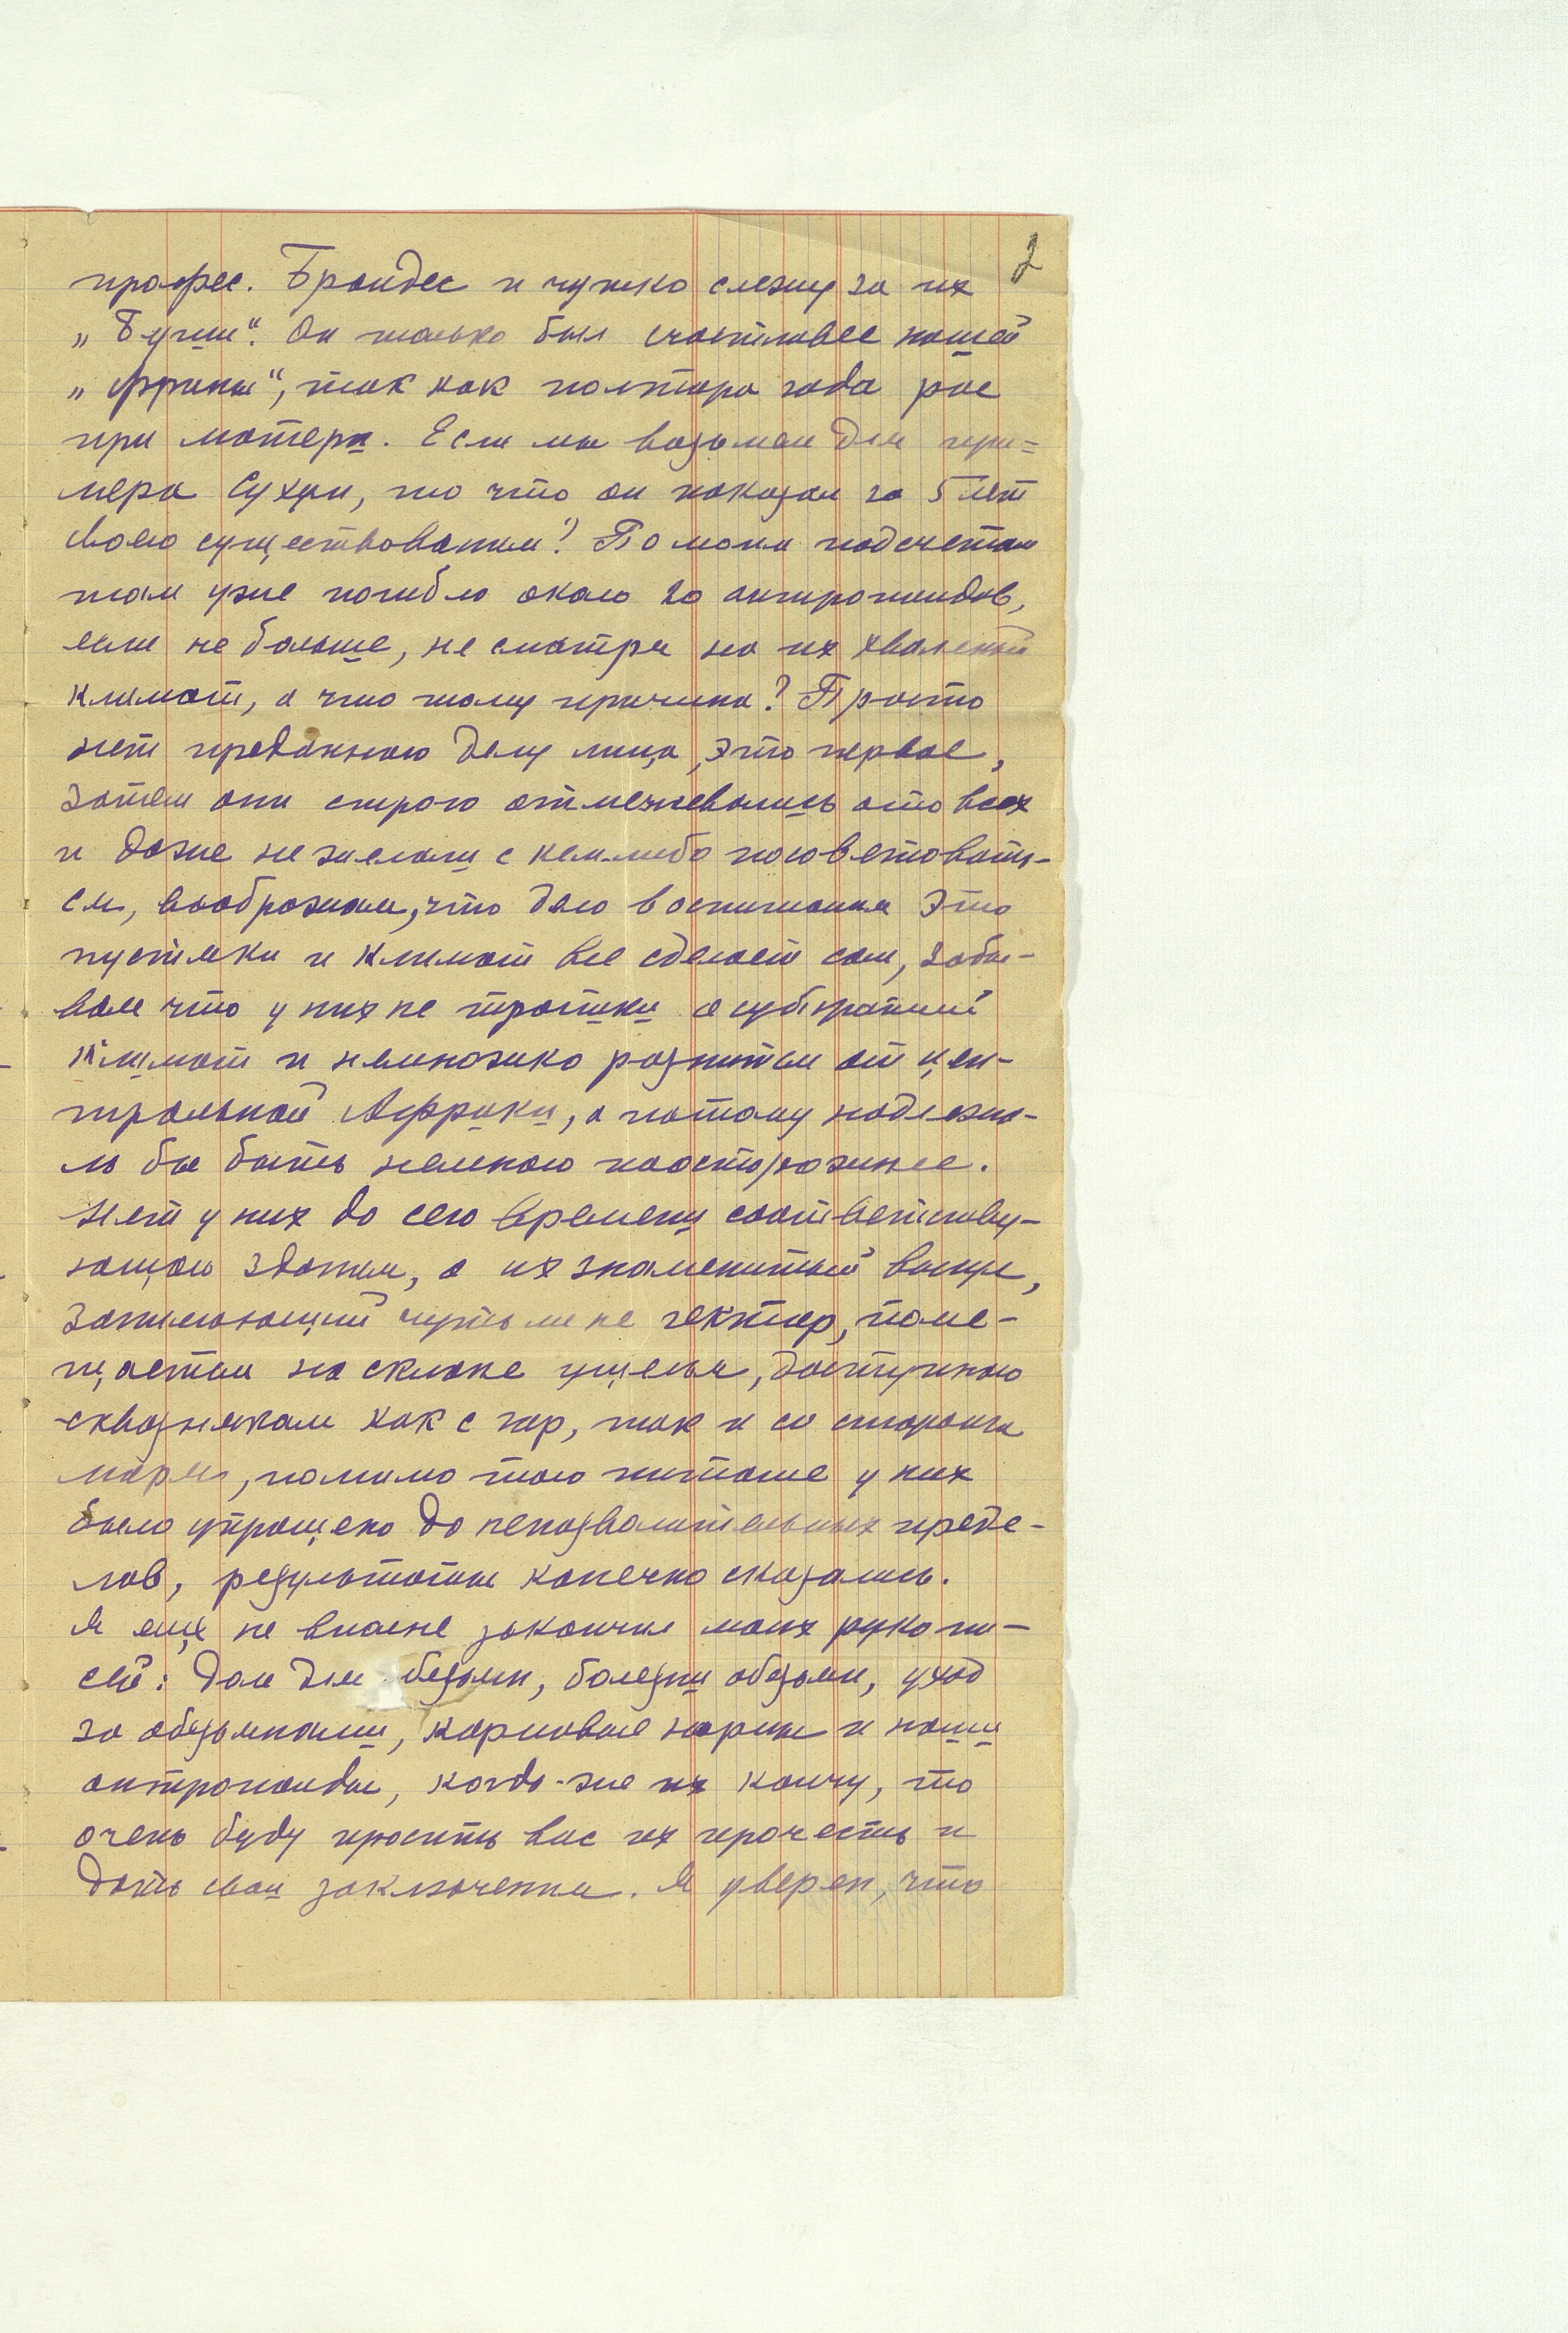 2
профес. Брандес и чутко слежу за их
„Буши". Он только был счастливее нашей
„Фрины", так как полтора года рос
при матери. Если мы возьмем для при=
мера Сухум, то что он показал за 5 лет
своего существования? По моим подсчетам
там уже погибло около 20 антропоидов,
если не больше, не смотря на их хваленый
климат, а что тому причина? Просто
нет преданного делу лица, это первое,
затем они строго отмежевались ото всех
и даже не желали с кем-либо посоветовать-
ся, воображая, что дело воспитания это
пустяки и климат все сделает сам, забы-
вая что у них не тропики а субтропический
климат и немножко разнится от цен-
тральной Африки, а потому надлежа-
ло бы быть немного поосторожнее.
Нет у них до сего времени соответству-
ющего здания, а их знаменитый вольер,
занимающий чуть ли не гектар, поме-
щается на склоне ущелья, доступного
сквознякам как с гор, так и со стороны
моря, помимо того питание у них
было упрощено до непозволительных преде-
лов, результаты конечно сказались.
Я еще не вполне закончил моих рукопи-
сей: дом для обезьян, болезни обезьян, уход
за обезьянами, кормовые нормы и наши
антропоиды, когда-же их кончу, то
очень буду просить вас их прочесть и
дать свои заключения. Я уверен, что